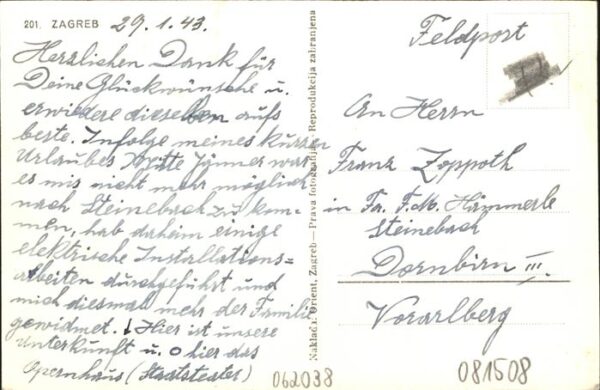 201. ZAGREB 29.1.43.
Herzlichen Dank für
Deine Glückwünsche u.
erwidere dieselben aufs
beste. Infolge meines kurzen
Urlaubes Mitte Jänner war
es mir nicht mehr möglich
nach Steinebach zu kom-
men, hab daheim einige
elektrische Installations=
arbeiten durchgeführt und
mich diesmal mehr der Familie
gewidmet. ↓ Hier ist unsere
Unterkunft u. o hier das
Opernhaus (Staatsteater)
Naklad J. Orient, Zagreb — Prava fotografija. Reprodukcija zabranjena
Feldpost
An Herrn
Franz Zoppoth
in Fa. F.M. Hämmerle
Steinebach
Dornbirn III.
Vorarlberg
062038
081508